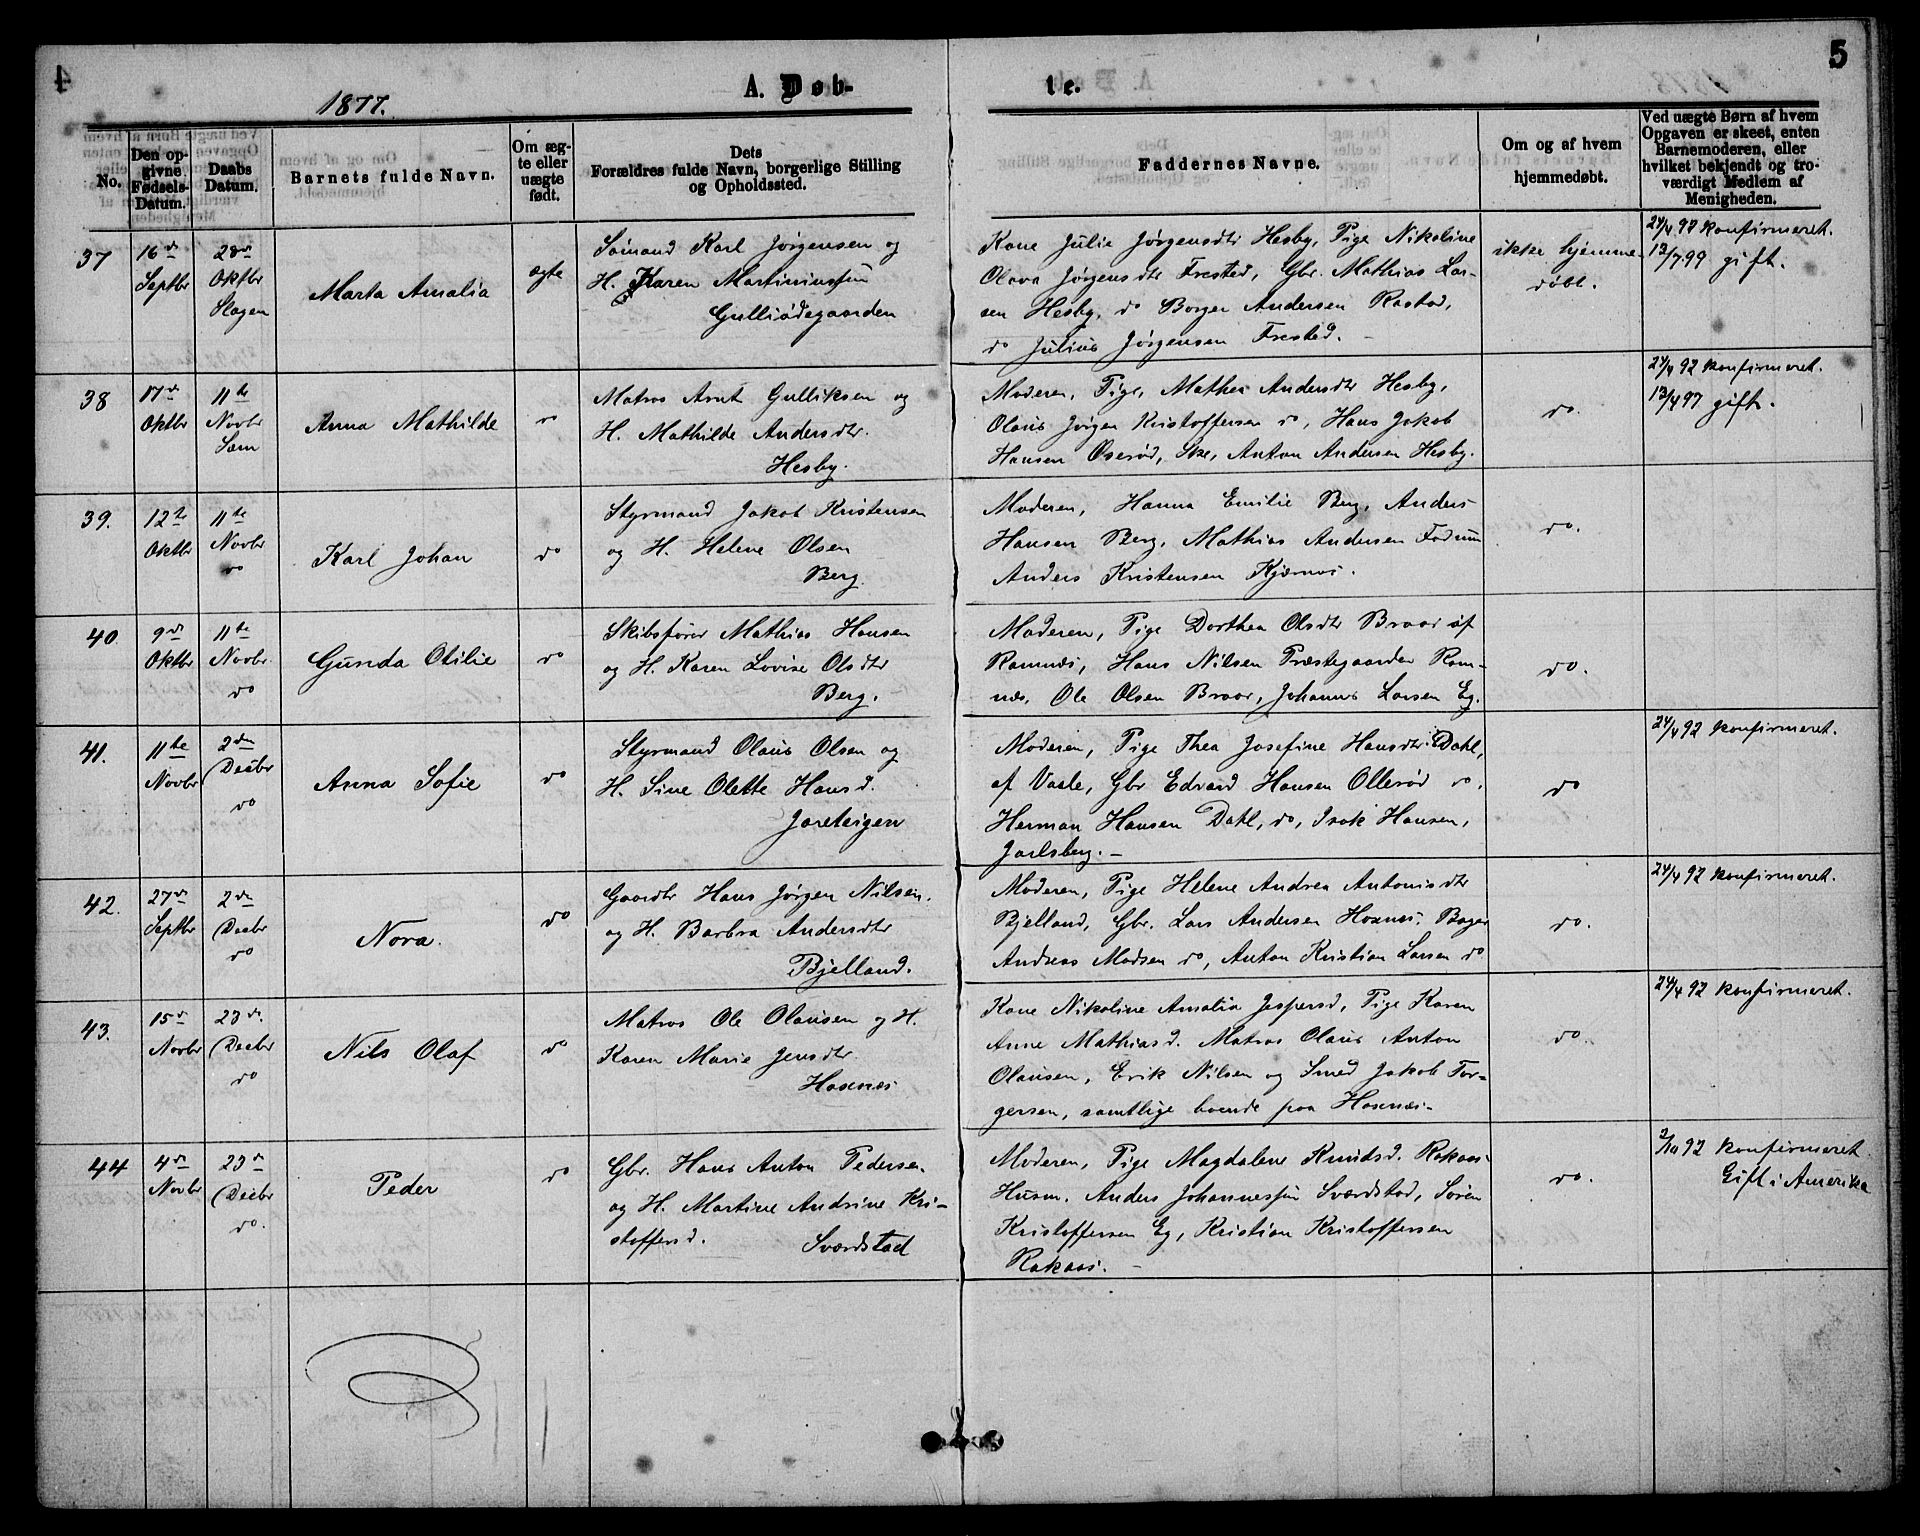 4
5
1877.
A. Døb-
te.
No.
Den op-
givne
Fødsels-
Datum.
Daabs
Datum.
Barnets fulde Navn.
Om æg-
te eller
uægte
født.
Dets
Forældres fulde Navn, borgerlige Stilling
og Opholdssted.
Faddernes Navne.
Om og af hvem
hjemmedøbt.
Ved uægte Børn af hvem
Opgaven er skeet, enten
Barnemoderen, eller
hvilket bekjendt og tro-
værdigt Medlem af
Menigheden.
37
16de
Septbr
28de
Oktbr
Slagen
Marta Amalia
ægte
Sømand Karl Jørgensen og
H. Karen Martiniussen
Gulliødegaarden
Kone Julie Jørgensdtr Hesby, Pige Nikoline
Olava Jørgensdtr Frested, Gbr. Mathias Lar-
sen Hesby, do Borger Andersen Rastad,
do Julius Jørgensen Frested. -
ikke hjemme-
døbt.
24/4 92 konfirmeret.
13/7 99 gift.
38
17de
Oktbr
11te
Novbr
Sem
Anna Mathilde
do
Matros Arnt Gulliksen og
H. Mathilde Andersdtr.
Hesby.
Moderen, Pige, Mathea Andersdtr Hesby,
Olaus Jørgen Kristoffersen do, Hans Jakob
Hansen Oserød, Ske, Anton Andersen Hesby.
do.
24/4 92 konfirmeret.
13/4 97 gift.
39.
12te
Oktbr
11te
Novbr
do
Karl Johan
do
Styrmand Jakob Kristensen
og H. Helene Olsen
Berg.
Moderen, Hanna Emilie Berg, Anders
Hansen Berg, Mathias Andersen Fodum
Anders Kristensen Kjærnes.
do.
40.
9de
Oktbr
11te
Novbr.
do
Gunda Otilie
do
Skibsfører Mathias Hansen
og H. Karen Lovise Olsdtr
Berg.
Moderen, Pige Dorthea Olsdtr Braar af
Ramnæs, Hans Nilsen Præstegaarden Ram-
næs, Ole Olsen Braar, Johannes Larsen Eg.
do.
41.
11te
Novbr
2den
Decbr
do
Anna Sofie
do
Styrmand Olaus Olsen og
H. Sine Olette Hansd.
Jareteigen
Moderen, Pige Thea Josefine Hansdtr Dahl,
af Vaale, Gbr Edvard Hansen Ollerød do,
Herman Hansen Dahl, do, Isak Hansen,
Jarlsberg. -
do
24/4 92 konfirmeret.
42.
27de
Septbr
2den
Decbr
do
Nora.
do
Gaardbr Hans Jørgen Nilsen.
og H. Barbra Andersdtr
Bjelland.
Moderen, Pige Helene Andrea Antonisdtr
Bjelland, Gbr. Lars Andersen Hoxnes. Bager
Andreas Madsen do, Anton Kristian Larsen do
do.
24/4 92 konfirmeret.
43.
15de
Novbr
23de.
Decbr
do
Nils Olaf
do
Matros Ole Olausen og H.
Karen Marie Jensdtr.
Hoxnæs
Kone Nikoline Amalia Jespersd, Pige Karen
Anne Mathiasd. Matros Olaus Anton
Olausen, Erik Nilsen og Smed Jakob Tor-
gersen, samtlige boende paa Hoxnæs.-
do.
24/4 92 konfirmeret.
44
4de
Novbr
23de
Decbr
do.
Peder
do
Gbr. Hans Anton Pedersen
og H. Martine Andrine Kri-
stoffersd.
Sværdstad
Moderen, Pige Magdalene Knudsd. Rakaas.
Husm. Anders Johannessen Sværdstad, Søren
Kristoffersen Eg, Kristian Kristoffersen
Rakaas. -
do.
2/10 92 konfirmeret
Gift i Amerika